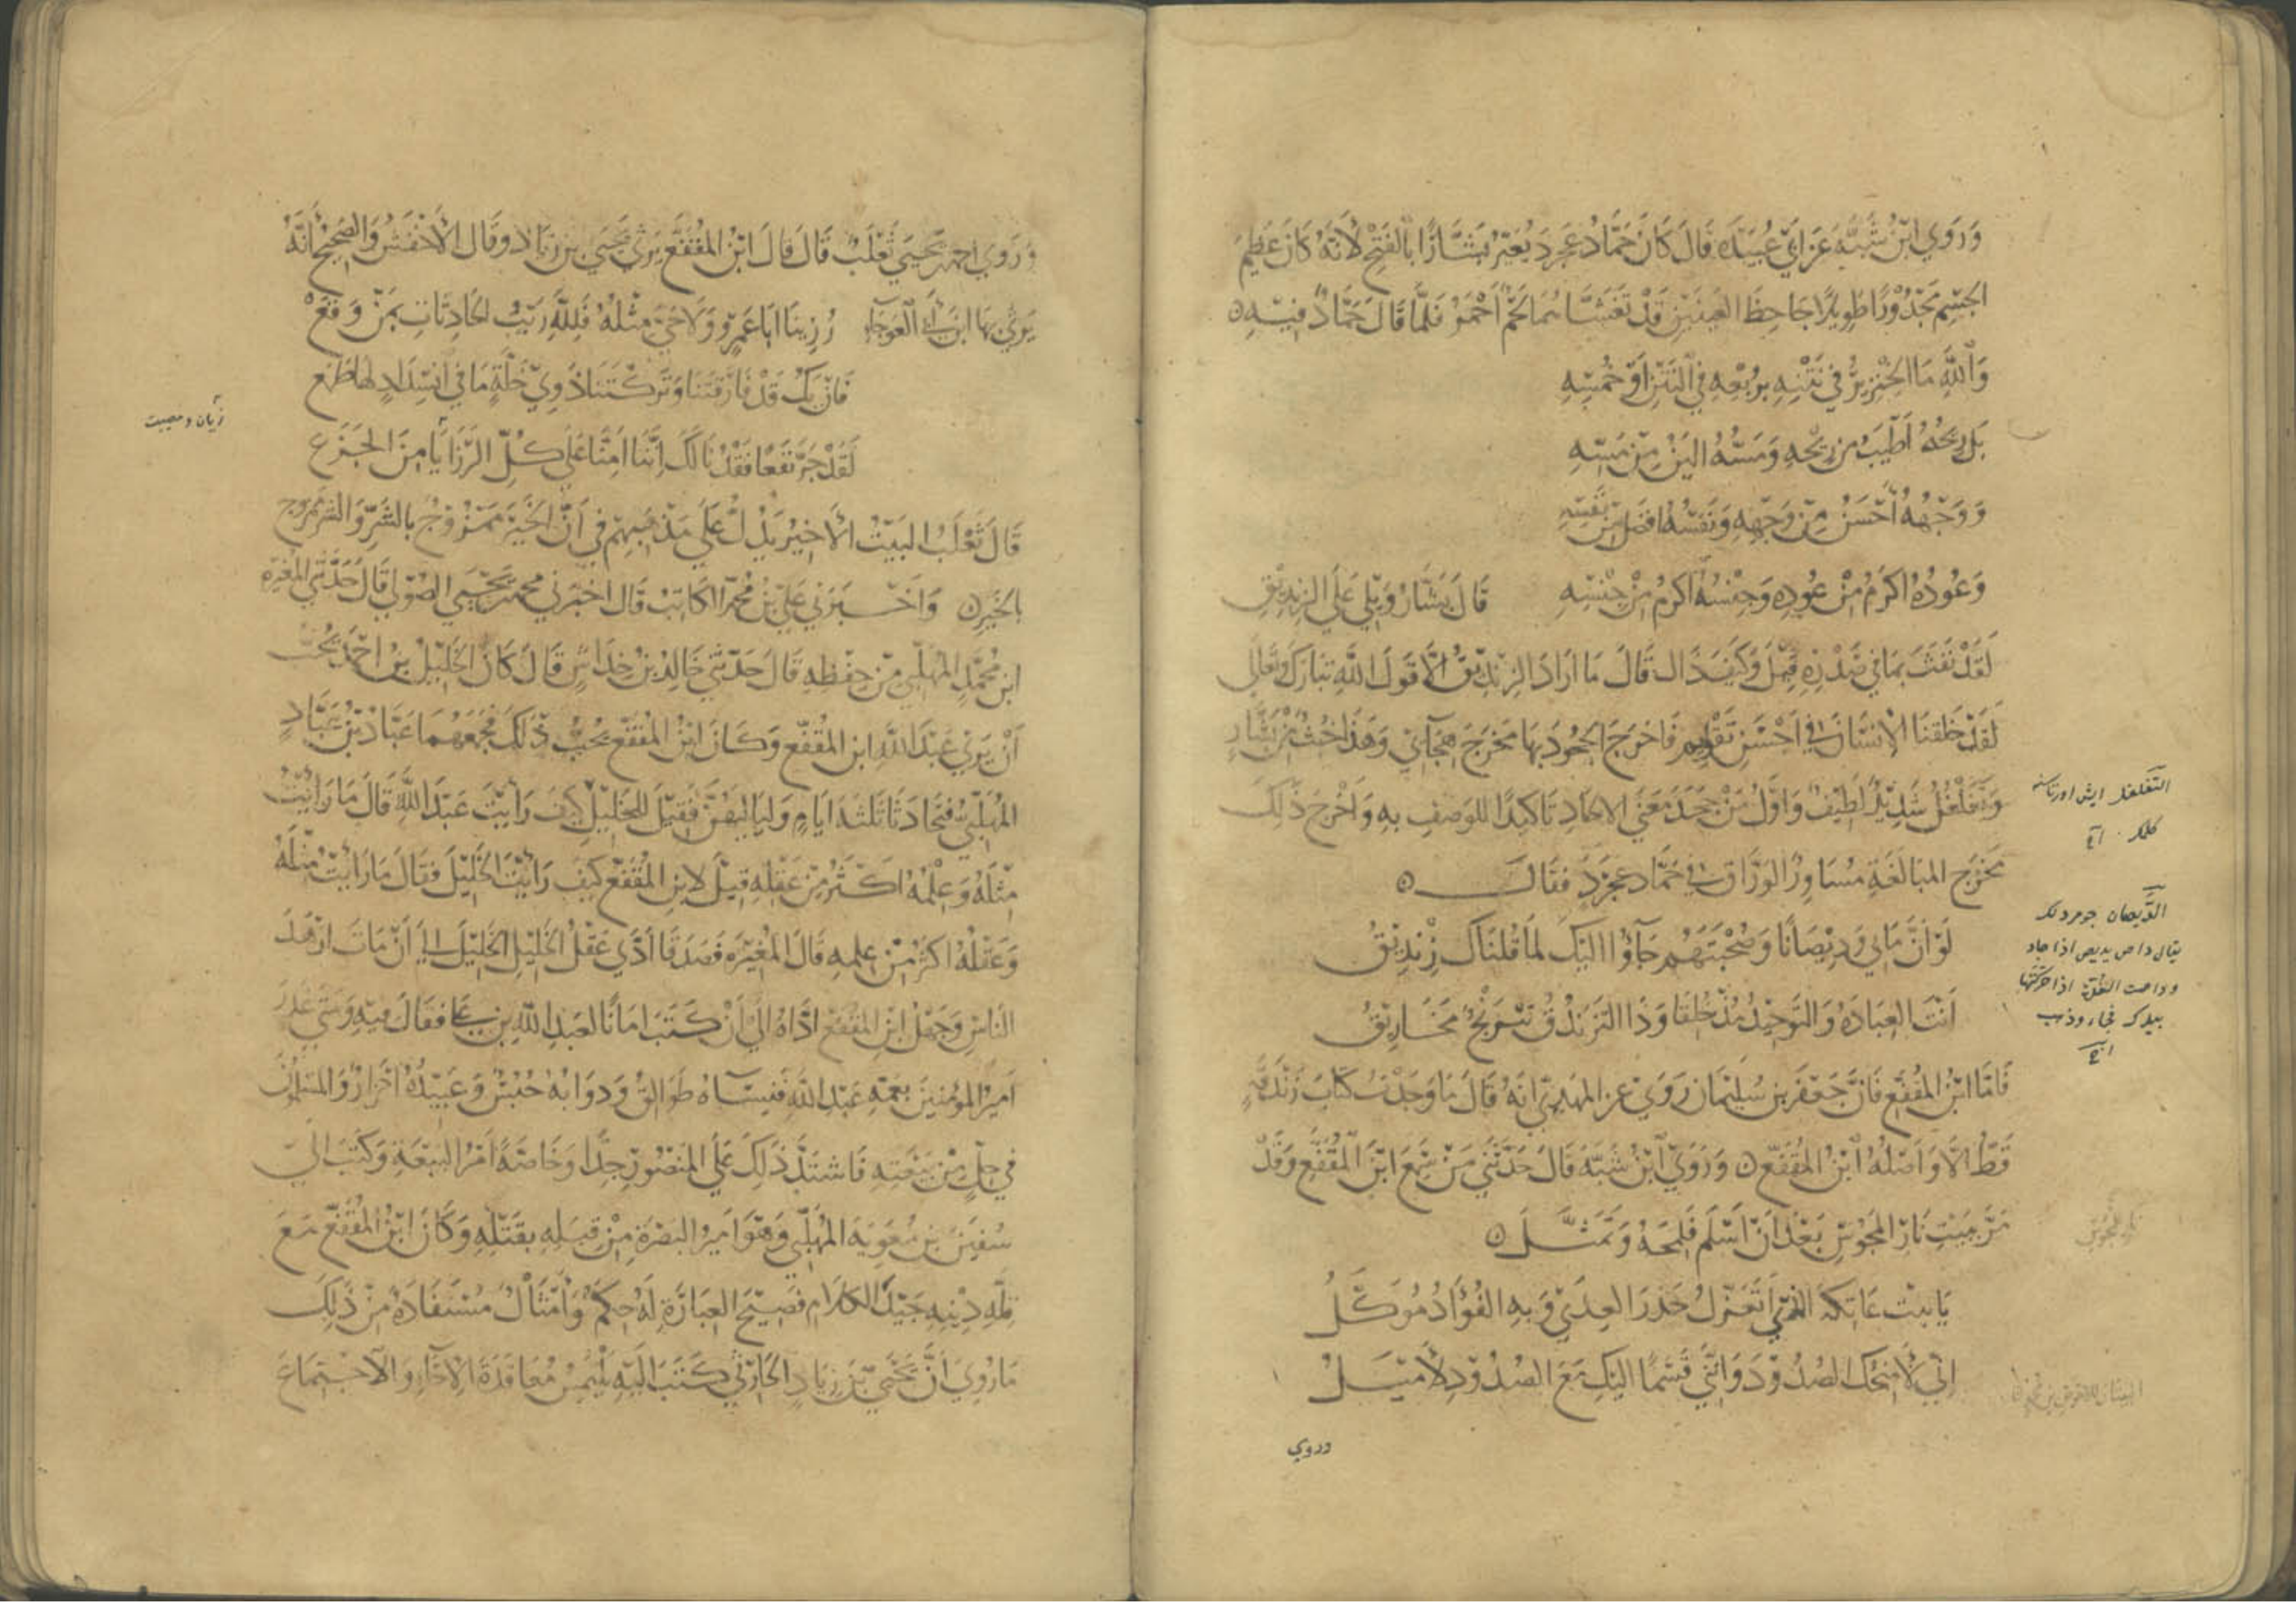 وَرَوَي ابْنُ شَبَّه عَن اَبي عُبَيْدَه قَالَ كَانَ حَمَّادُ عَجرَد يُعَيِّرُ بَشَّارًا بالقُبْحِ لأنَّهُ كَانَ عَظِيمَ
الجسْمِ مَجْدُوْرًا طَوِيلًا جَاحِظَ العَيْنَيْنِ قَدْ تَغَشَّاهُمَا لَحْمٌ اَحْمَرُ فَلَمَّا قَالَ حَمَّادٌ فيْهِ
وَاللّهِ مَا الخِنْزِيرُ في نَتْنِهِ بِرُبْعِهِ في النَّتْنِ اَوْ خُمْسِهِ
بَل رِيحُهُ اَطْيَبُ مِن رِيْحِهِ وَمَسُّهُ اليَنُ مِنْ مَسِّهِ
وَوَجْهُهُ اَحْسَنُ مِنْ وَجْهِهِ وَنَفْسُهُ افضَلُ مِنْ نَفْسِهِ
وَعُودُهُ اكرَمُ مِنْ عُودِهِ وَجِنْسُهُ اَكرَمُ مِنْ جِنْسِهِ قَالَ بَشَّارُ وَيْلي عَلَى الزِنْدِيْقِ
لَقَدْ نَفَثَ بِمَا في صَدْرِهِ قِيْلَ وَكَيفَ ذَاك قَالَ مَا اَرَادَ الزِنْدِيْقُ الاَّ قَولَ اللَّهِ تَبَارَكَ وَتَعَالى
لَقَدْ خَلَقنَا الإِنسَانَ في اَحْسَنِ تَقْوِيم فَاخرَجَ الجحُودَ بِهَا مَخرَجَ هِجَائي وَهَذَا خُبْثٌ مِنْ بَشَّارٍ
وَتَغَلْغُلٌ شَدِيْدٌ لَطِيْفٌ وَاَوَّلُ مَنْ جَحَدَ مَعْنَي الالحَادِ تَاكيدًا للوَصفِ بِهِ وَاَخْرَجَ ذَلِكَ
مَخْرَجَ المبَالَغَةِ مُسَاوِرٌ الوَرَّاق في حَمَّاد عَجْرَدٍ فَقَالَ
لَوْ اَنَّ مَاني وَدِيْصَانًا وَصُحْبَتَهُم جَآؤُا الَيْكَ لمَا قُلنَاكَ زِنْدِيْقُ
اَنْتَ العِبَادَهُ وَالتَّوحِيْدُ مُذْ خُلِقَا وَذَا التَّزَندُقُ نَيْرَنْجٌ مَخَارِيْقُ
فَامَّا ابْنُ المُقَفَّع فَانَّ جَعْفَر بن سُلَيْمَان رَوَيَ عنِ المهْدِيّ انَهُ قَالَ مَا وَجَدْتُ كتَابَ زَنْدَقَةٍ
قَطُّ الاَّ وَاَصلُهُ ابْنُ المُقَفَّعِ وَرَوَيَ ابْنُ شَبَّهَ قَالَ حَدَّثَنِي مَنْ سَمِعَ ابْنَ المُقَفَّعِ وَقَدْ
مَرَّ ببَيْتِ نَارِ المَجُوْسِ بَعْدَ اَنْ اَسْلَم فَلَمَحَهُ وَتَمَثَّلَ
يَا بيْتَ عَاتِكَةَ الذِي اَتَعَزَّلُ حَذَرَ العِدَي وَبِهِ الفُؤَادُ مُوَكَّلُ
اِنِّي لأَمْنَحُكَ الصُدُوْدَ وَاِنَّنِي قَسَمًا اليْكَ مَعَ الصُدُوْدِ لأَمْيَلُ
وروي
التغلغل
يقال داص يديص اذا حاد
نار المجوس
وَرَوَي احمد بن يَحْيَي ثَعْلَبُ قَالَ قَالَ ابْنُ المُقَفَّعِ يَرْثي يَحْيَي بن زِيَادٍ وَقَالَ الأَخْفَشُ وَالصَّحِيْحُ اَنَّهُ
يَرْثِي بِهَا ابْنَ اَبي العَوجَاءِ رُزِيْنَا اَبَا عَمرٍو وَلَا حَيَّ مِثْلَهُ فَلِلَّهِ رَيْبُ الحَادِثَاتِ بمَنْ وَقَعْ
فَاِنْ يَكُ قَدْ فَارَقتَنَا وَتَرَكْتَنَا ذَوِيْ خَلَّةٍ مَا في انْسِدَادٍ لهَا طَمَع
لَقَدْ جَرَّ نَفْعًا فَقْدُنَا لَكَ اِنَّنَا اَمِنَّا عَلَي كُلِّ الرَّزَايَا مِنَ الجَزَع
قَالَ ثَعْلَبُ البَيْتُ الأَخِيْرُ يَدُلُّ عَلَي مَذْهَبِهِمْ في اَنَّ الخَيْرَ مَمْزُوْجٌ بالشَّرِّ وَالشَر مَمزوج
بالخَيْرِ وَاَخْبَرَنِي عَليّ بْنُ مُحَمَّد الكَاتِبُ قَالَ اخبَرَنِي مُحَمَّد بن يَحْيَي الصُوْلي قَالَ حَدَّثَنِي المُغيْرَة
ابن مُحَمَّدٍ المُهَلَّبي مِنْ حِفْظِهِ قَالَ حَدَّثَنِي خَالِدُ بْنُ خِدَاشٍ قَالَ كَانَ الخَلِيْلُ بْنُ احْمَد يُحِبُّ
اَنْ يَرَي عَبْدَ اللَّهِ ابن المُقَفَّع وَكَانَ ابْنُ المُقَفَّع يُحِبُّ ذَلِكَ فجَمَعَهُمَا عَبَّادُ بْنُ عَبَّادٍ
المُهَلَّبِيُّ فَتَحَادَثَا ثَلثَةَ اَيَامٍ وَلَيَالِيَهُنَّ فَقِيْلَ لِلخَلِيْلِ كَيْفَ رَاَيْتَ عَبْدَ اللَّهِ قَالَ مَا رَاَيْتُ
مِثْلَهُ وَعِلْمُهُ اكْثَرُ مِنْ عَقْلِهِ قِيْلَ لابنِ المُقَفَّعِ كَيْفَ رَاَيْتَ الخَلِيْلَ فَقَالَ مَا رَاَيْتُ مِثْلَهُ
وَعَقْلُهُ اكثَرُ مِنْ عِلمِهِ قَالَ المُغِيْرَه فَصَدَقَا اَدَّي عَقْلُ الخَلِيْلِ الخَلِيْلَ الي اَنْ مَاتَ اَزْهَدَ
النَّاسِ وَجَهْلُ ابْنِ المُقَفَّع ادَّاهُ الي اَنْ كَتَبَ امَانًا لعَبدِ اللّهِ بن عَلي فَقَالَ فيْهِ وَمَتَي غَدَرَ
اَمِيْرُ المُؤمِنِيْنَ بِعَمِّهِ عَبْدِ اللَّهِ فَنِسَآؤُهُ طَوَالِقُ وَدَوَابُهُ حُبُسٌ وَعَبِيْدُهُ اَحْرَارٌ وَالمُسْلِمُوْنَ
في حِلٍّ مِنْ بَيْعَتِهِ فَاشتَدَّ ذَلِكَ عَلَي المنْصُورِ جِدًّا وَخَاصَّةً اَمْرُ البَيْعَةِ وَكَتَبَ اليَ
سُفيَن بن مُعَوِيَة المُهَلَّبي وَهُوَ اَمِيرُ البَصْرَةِ مِنْ قِبَلِهِ بقَتْلِهِ وَكَانَ ابْنُ المُقَفَّع مَعَ
قِلَّةِ دِيْنِهِ جَيِّدَ الكَلَامِ فَصِيْحَ العِبَارَةِ لَهُ حِكَمٌ وَاَمْثَالٌ مُسْتَفَادَةٌ مِنْ ذَلِكَ
مَا رُوِيَ اَنَّ يَحْيَي بْنَ زِيَادٍ الحَارِثِي كَتَبَ الَيْهِ يَلْتَمِسُ مُعَاقَدَةَ الاخَاءِ وَالاجتِمَاعَ
زيان ومصيبت